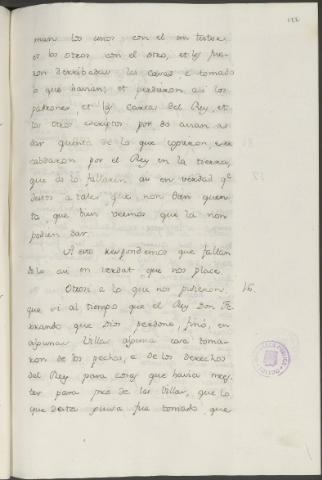 man los unos con el un
et los otros con el otro, et les fue-
ron derribadas las casas e tomado
lo que havian; et perdieron asi los
padrones, et las cartas del Rey, et
los otros escriptos por do avian a
dar quenta de lo que cogieron, e re-
cabdaron por el Rey en la tierra,
que do lo fallaren asi en verdad q.e
destos atales que non den quen-
ta, que bien veemos que la non
podien dar.
A esto respondemos que fallan-
dolo asi en verdat que nos place.
Otrosi a lo que nos pidieron, 16.
que si al tiempo que el Rey Don Fe-
rrando que Dios perdone, finó, en
algunas Villas alguna cosa toma-
ron de los pechos, e de los derechos
del Rey para cosas que havia mes-
ter para pro de las Villas, que lo
que desta guisa fue tomado, que